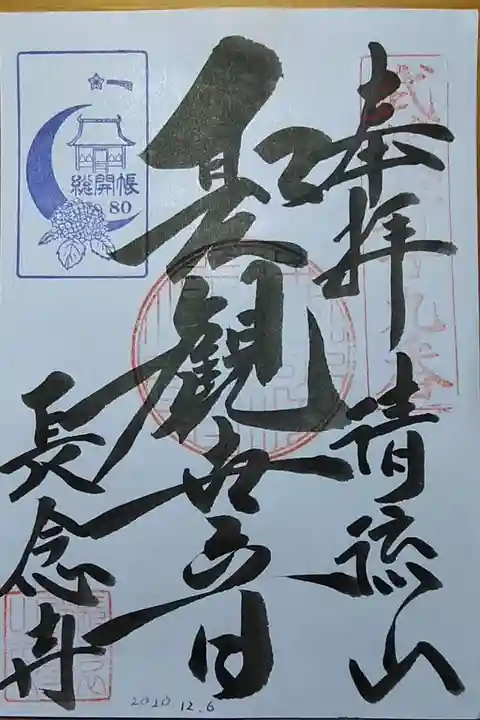 奉拝 清流山
聖観世音
長念寺
総開帳
80
2020 12.6